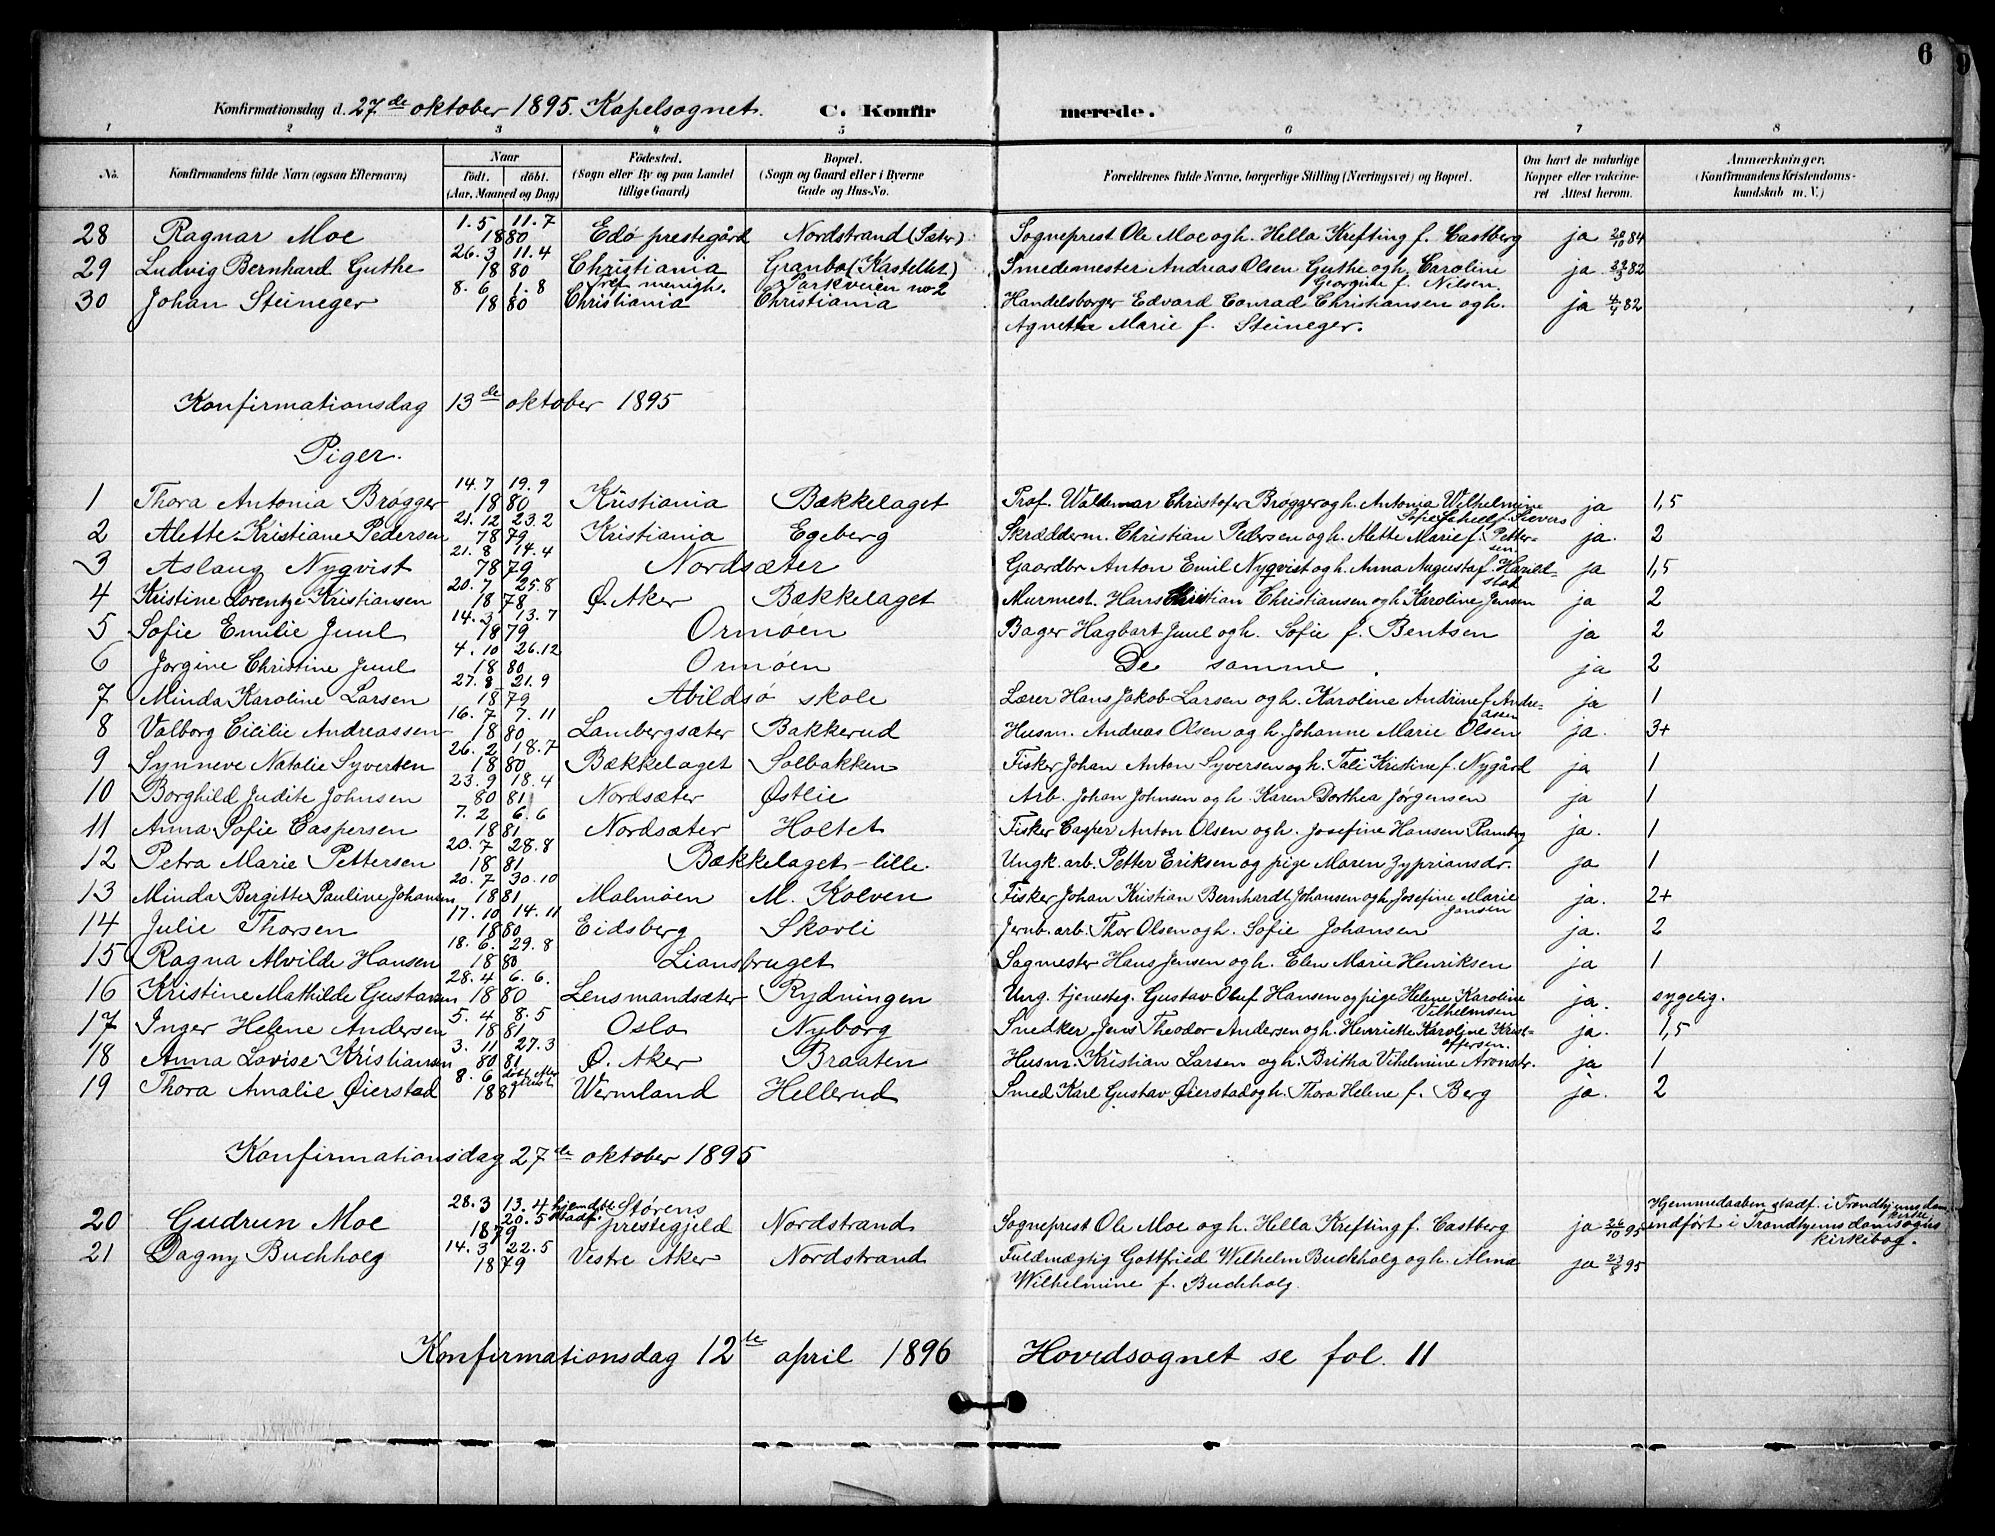 6
Konfirmationsdag d. 27de oktober 1895. Kapelsognet. C. Konfirmerede.
1 2 3 4 5 6 7 8
No. Konfirmandens fulde Navn (ogsaa Efternavn) Naar födt. döbt. (Aar, Maaned og Dag) Födested. (Sogn eller By og paa Landet tillige Gaard) Bopæl. (Sogn og Gaard eller i Byerne Gade og Hus-No. Forældrenes fulde Navne, borgerlige Stilling (Næringsvei) og Bopæl. Om havt de naturlige Kopper eller vakcineret Attest herom. Anmærkninger, (Konfirmandens Kristendomskundskab m. V.)
28 Ragnar Moe 1.5 11.7 1880 Edø prestegård Nordstrand (Sæter) Sogneprest Ole Moe og h. Hella Krefting f. Castberg ja 84
29 Ludvig Bernhard Guthe 26.3 11.4 1880 Christiania Granbo (Kastellet) Smedemester Andreas Olsen Guthe og h. Caroline Georgine f. Nilsen. ja 82
30 Johan Steineger 8.6 1.8 1880 ref. menigh. Christiania Parkveien no 2 Christiania Handelsborger Edvard Conrad Christiansen og h. ja 4/4 82
Agnethe Marie f. Steineger.
Konfirmationsdag 13de oktober 1895
Piger.
1 Thora Antonia Brøgger 14.7 19.9 1880 Kristiania Bækkelaget Prof. Waldemar Christofer Brøgger og h. Antonia Wilhelmine Sofie Schielf. Sievers ja 1,5
2 Alette Kristiane Pedersen 21.12 23.2 78 79 Kristiania Egeberg Skrædderm. Christian Pedersen og h. Mette Marie f. Pettersen. ja. 2
3 Aslaug Nyqvist 21.8 14.4 78 79 Nordsæter Gaardbr Anton Emil Nyqvist og h. Anna Augusta f. Haraldstad ja 1,5
4 Kristine Lorentze Kristiansen 20.7 25.8 1878 Ø. Aker Bækkelaget Murmest. Hans Christian Christiansen og h. Karoline Jensen ja 2
5 Sofie Emilie Juul 14.3 13.7 1879 Ormøen Bager Hagbart Juul og h. Sofie f. Bentsen ja 2
6 Jorgine Christine Juul 4.10 26.12 1880 Ormøen De samme. ja 2
7 Minda Karoline Larsen 27.8 21.9 1879 Abildsø skole Lærer Hans Jakob Larsen og h. Karoline Andrine f. Andreassen ja 1
8 Valborg Cicilie Andreassen 16.7 7.11 1880 Lambergsæter Bakkerud Husm. Andreas Olsen og h. Johanne Marie Olsen ja. 3+
9 Synneve Natalie Syvertsen 26.2 18.7 1880 Bækkelaget Solbakken Fisker Johan Anton Syversen og h. Tali Kristine f. Nygård ja 1
10 Borghild Judite Johnsen 23.9 18.4 80 81 Nordsæter Østlie Arb. Johan Johnsen og h. Karen Dorthea Jørgensen ja 1
11 Anna Sofie Caspersen 7.2 6.6 1881 Nordsæter Holtet Fisker Casper Anton Olsen og h. Josefine Hansen Ramberg ja. 1
12 Petra Marie Pettersen 20.7 28.8 1881 Bækkelaget-lille. Ungk. arb. Petter Eriksen og pige Maren Zypriansdr. ja 1
13 Minda Bergitte Pauline Johansen 20.7 30.10 1881 Malmøen M. Kolven Fisker Johan Kristian Bernhardt Johansen og h. Josefine Marie Jansen ja. 2+
14 Julie Thorsen 17.10 14.11 1880 Eidsberg Skovli Jernb. arb. Thor Olsen og h. Sofie Johansen ja. 2
15 Ragna Alvilde Hansen 18.6. 29.8 1880 Liansbruget Sagmester Hans Jensen og h. Elen Marie Henriksen ja 1
16 Kristine Mathilde Gustavsen 28.4 6.6. 1880 Lensmandsæter Rydningen Ung. tjenesteg. Gustav Oluf Hansen og pige Helene Karoline Vilhelmsen ja. sygelig.
17 Inger Helene Andersen 5.4 8.5 1881 Oslo Nyborg Snedker Jens Theodor Andersen og h. Henriette Karoline Kristoffersen. ja. 1,5
18 Anna Lovise Kristiansen 3.11 27.3 80 81 Ø. Aker Braaten Husm. Kristian Larsen og h. Britha Vilhelmine Aronsdr. ja 1
19 Thora Amalie Øierstad 8.6 1881 Wermland Hellerud Smed Karl Gustav Øierstad og h. Thora Helene f. Berg ja. 2
Konfirmationsdag 27de oktober 1895
20 Gudrun Moe 28.3 13.4 hjemdbt. 20.5 stadf. 1879 Størens prestegjeld Nordstrand Sogneprest Ole Moe og h. Hella Krefting f. Castberg ja 26/10 95 Hjemmedaaben stadf. i Trondhjems domkirke indført i Trondhjems domsogns kirkebog.
21 Dagny Buchholz 14.3 22.5 1879 Vestre Aker Nordstrand Fuldmægtig Gottfried Wilhelm Buchholz og h. Alma ja 23/8 95
Wilhelmine f. Buchholz.
Konfirmationsdag 12te april 1896 Hovedsognet se fol. 11